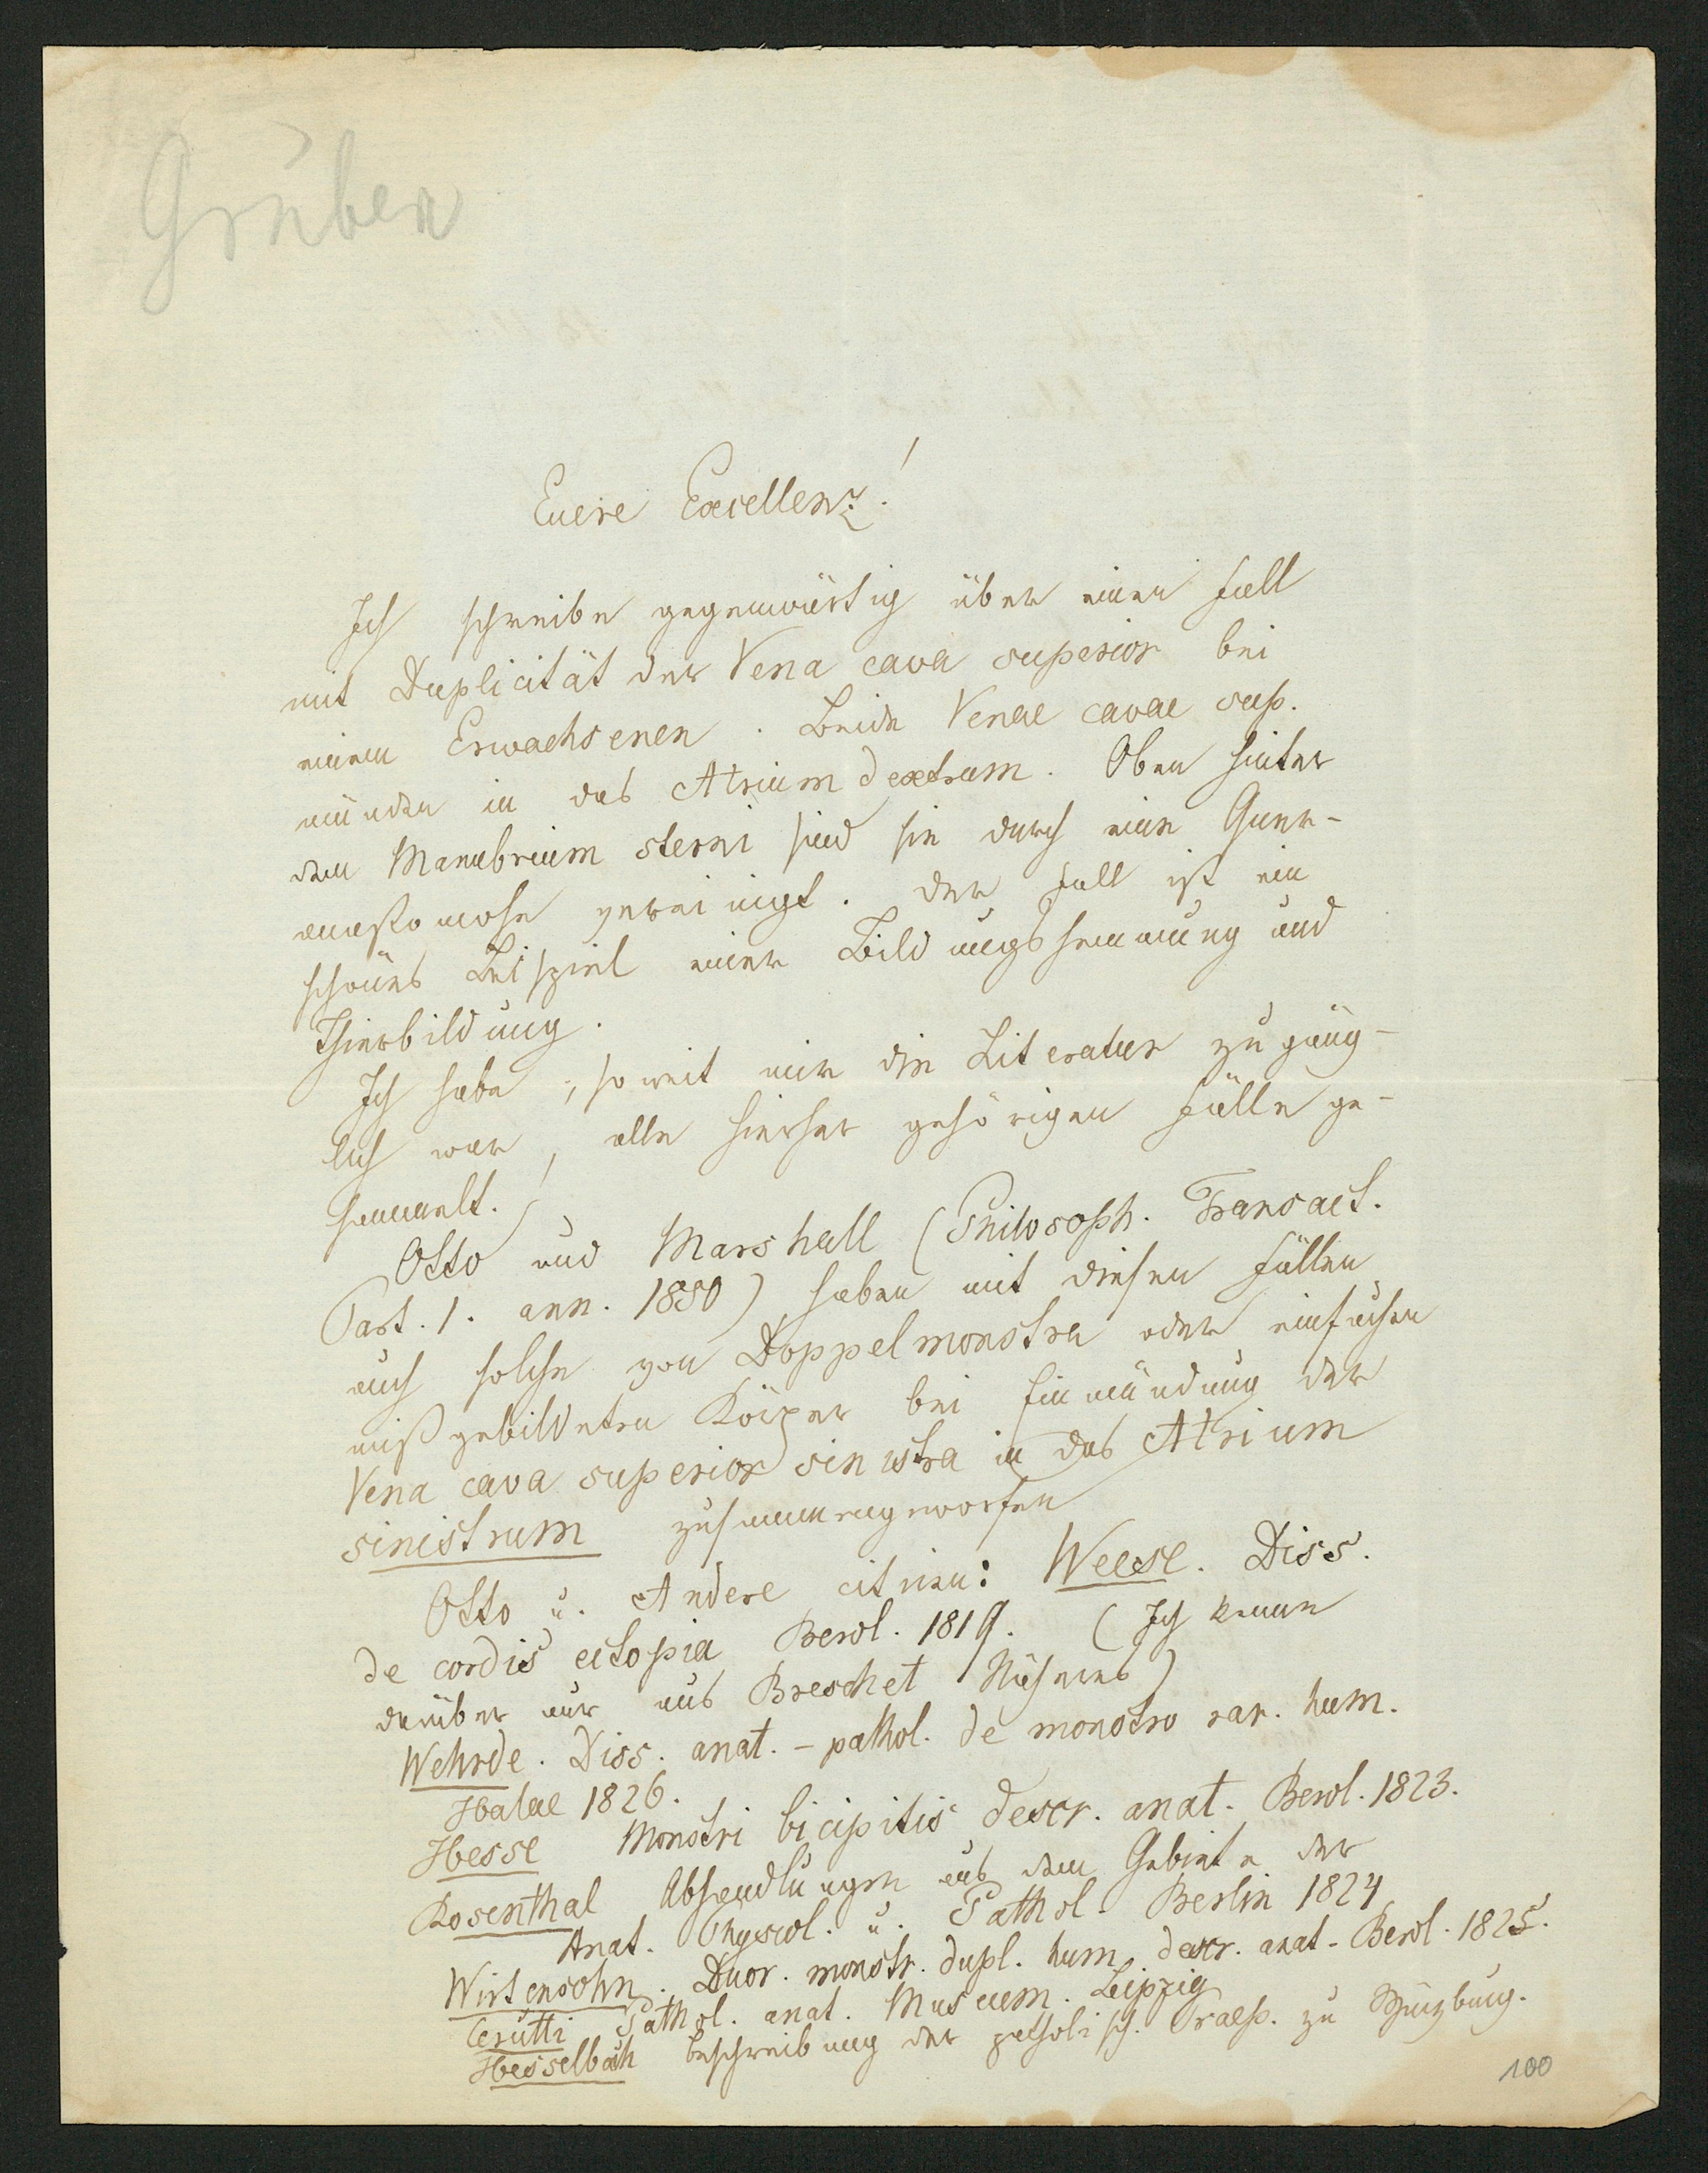 Gruber
Euere Excellenz!
Ich schreibe gegenwärtig über einen Fall
mit Duplicität der Vena cava superior bei
einem Erwachsenen. Beide Venae cavae sup.
münden in das Atrium dextrum. Oben hinter
dem Manubrium sterni sind sie durch eine Quer-
anastomose vereinigt. Der Fall ist ein
schönes Beispiel einer Bildungshemmung und
Thierbildung.
Ich habe, soweit mir die Literatur zugäng-
lich war, alle hierher gehörigen Fälle ge-
sammelt.
Otto und Marshall (Philosoph. Transact.
Part. 1. ann. 1850) haben mit diesen Fällen
auch solche von Doppelmonstra oder einfachen
mißgebildeten Körper bei Einmündung der
Vena cava superior sinistra in das Atrium
sinistrum zusammengeworfen
Otto u. Andere citiren: Weese. Diss.
de cordis ectopia Berol. 1819. (Ich kenne
darüber nur aus Breschet Näheres)
Wehrde. Diss. anat.-pathol. de monstro rar. hum.
Halae 1826.
Hesse Monstri bicipitis descr. anat. Berol. 1823.
Rosenthal Abhandlungen aus dem Gebiete der
Anat. Physiol. u. Pathol. Berlin 1824
Wirtensohn. Duor. monstr. dupl. hum. descr. anat. Berol. 1825.
Cerutti Pathol. anat. Museum. Leipzig
Hesselbach Beschreibung der patholisch. Praep. zu Würzburg.
100